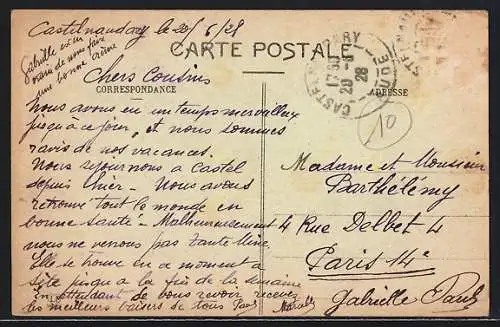 Castelnaudary le 29/6/28
Gabrielle est en
train de nous faire
une bonne crème
CARTE POSTALE
Chers Cousins
CORRESPONDANCE
ADRESSE
CASTELNAUDARY
AUDE
28
10
Nous avons eu un temps merveilleux
jusqu'à ce jour, et nous sommes
ravis de nos vacances.
Nous séjournons à Castel
depuis hier - Nous avons
retrouvé tout le monde en
bonne santé - Malheureusement
nous ne verrons pas tante Mine.
Elle se trouve en ce moment à
Sète jusqu'à la fin de la semaine
En attendant de vous revoir recevez
les meilleurs baisers de tous Paul
Marcelle
Gabrielle Paul
Madame et Monsieur
Barthélémy
4 Rue Delbet 4
Paris 14e